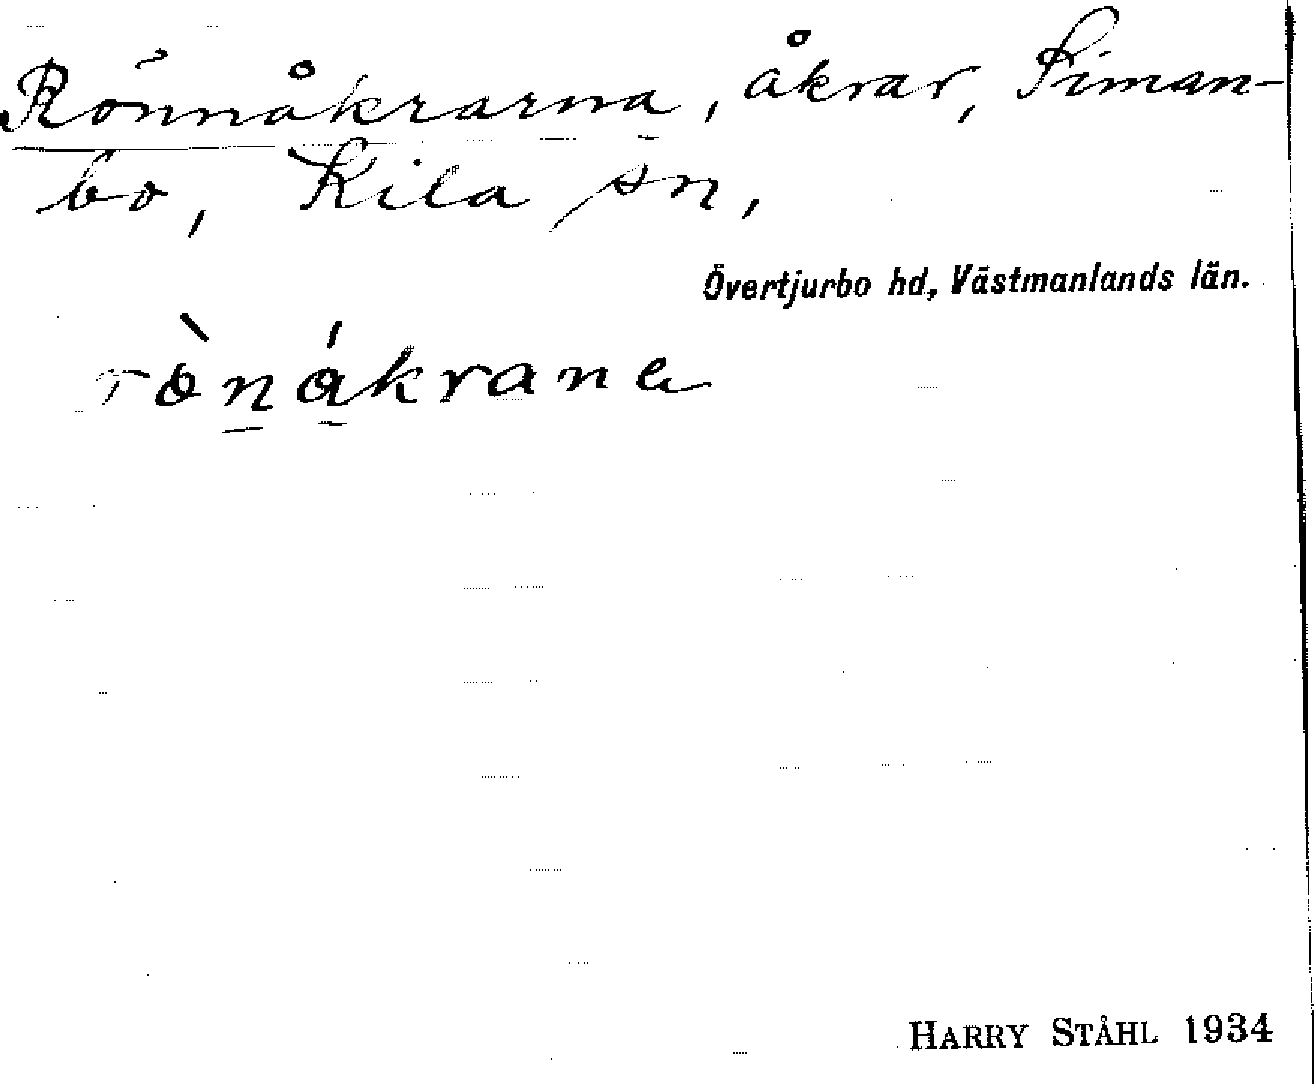 Rönnåkrarna, åkrar, Siman-
bo, Kila sn,
Övertjurbo hd, Västmanlands län.
rònákrana
HARRY STÅHL 1934